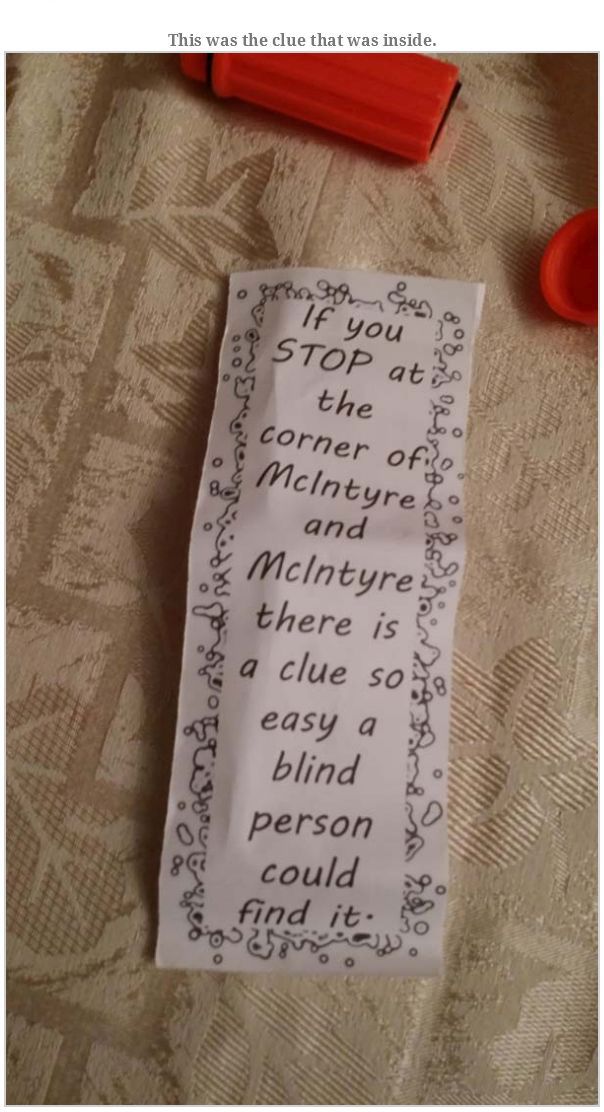 This was the clue that was inside.
If you
STOP at
the
corner of
McIntyre
and
McIntyre
there is
a clue so
easy a
blind
person
could
find it.